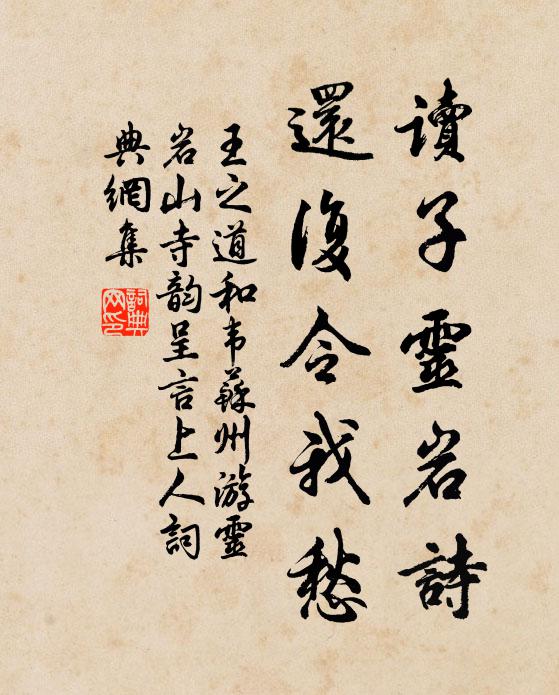 讀子靈岩詩
還復令我愁
王之道和韦蘇州游靈
岩山寺韵呈言上人詞
典網集
詞典
网印